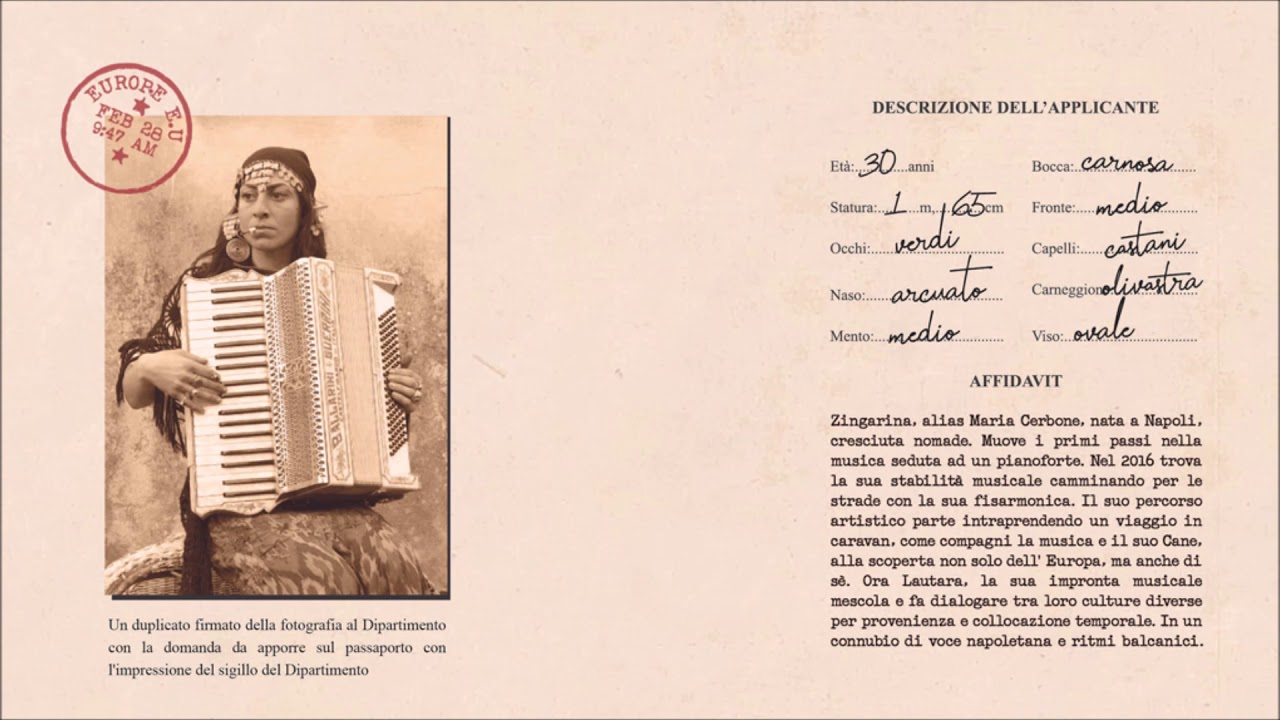 EUROPE E.U
FEB 28
9:47 AM
Un duplicato firmato della fotografia al Dipartimento
con la domanda da apporre sul passaporto con
l'impressione del sigillo del Dipartimento
BALLARINI
DESCRIZIONE DELL'APPLICANTE
Età: 30 anni
Statura: 1 m, 65 cm
Occhi: verdi
Naso: arcuato
Mento: medio
Bocca: carnosa
Fronte: medio
Capelli: castani
Carneggion olivastra
Viso: ovale
AFFIDAVIT
Zingarina, alias Maria Cerbone, nata a Napoli,
cresciuta nomade. Muove i primi passi nella
musica seduta ad un pianoforte. Nel 2016 trova
la sua stabilità musicale camminando per le
strade con la sua fisarmonica. Il suo percorso
artistico parte intraprendendo un viaggio in
caravan, come compagni la musica e il suo Cane,
alla scoperta non solo dell' Europa, ma anche di
sè. Ora Lautara, la sua impronta musicale
mescola e fa dialogare tra loro culture diverse
per provenienza e collocazione temporale. In un
connubio di voce napoletana e ritmi balcanici.